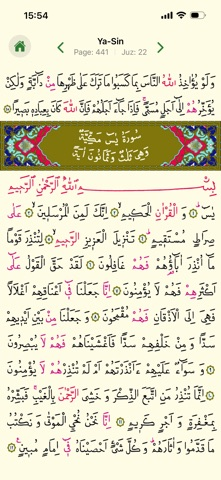 15:54
Ya-Sin
Page: 441 Juz: 22
وَلَوْ يُؤَاخِذُ اللّٰهُ النَّاسَ بِمَا كَسَبُوا مَا تَرَكَ عَلٰى ظَهْرِهَا مِنْ دَٓابَّةٍ وَلٰكِنْ
يُؤَخِّرُهُمْ اِلٰٓى اَجَلٍ مُسَمًّى فَاِذَا جَٓاءَ اَجَلُهُمْ فَاِنَّ اللّٰهَ كَانَ بِعِبَادِه۪ بَص۪يرًا
سُورَةُ يٰسٓ مَكِّيَّةٌ
وَهِيَ ثَلَاثٌ وَثَمَانُونَ اٰيَةً
بِسْمِ اللّٰهِ الرَّحْمٰنِ الرَّح۪يمِ
يٰسٓ ١ وَالْقُرْاٰنِ الْحَك۪يمِ ٢ اِنَّكَ لَمِنَ الْمُرْسَل۪ينَ ٣ عَلٰى
صِرَاطٍ مُسْتَق۪يمٍ ٤ تَنْز۪يلَ الْعَز۪يزِ الرَّح۪يمِ ٥ لِتُنْذِرَ قَوْمًا
مَٓا اُنْذِرَ اٰبَٓاؤُ۬هُمْ فَهُمْ غَافِلُونَ ٦ لَقَدْ حَقَّ الْقَوْلُ عَلٰٓى
اَكْثَرِهِمْ فَهُمْ لَا يُؤْمِنُونَ ٧ اِنَّا جَعَلْنَا ف۪ٓي اَعْنَاقِهِمْ اَغْلَالًا
فَهِيَ اِلَى الْاَذْقَانِ فَهُمْ مُقْمَحُونَ ٨ وَجَعَلْنَا مِنْ بَيْنِ اَيْد۪يهِمْ
سَدًّا وَمِنْ خَلْفِهِمْ سَدًّا فَاَغْشَيْنَاهُمْ فَهُمْ لَا يُبْصِرُونَ
٩ وَسَوَٓاءٌ عَلَيْهِمْ ءَاَنْذَرْتَهُمْ اَمْ لَمْ تُنْذِرْهُمْ لَا يُؤْمِنُونَ
١٠ اِنَّمَا تُنْذِرُ مَنِ اتَّبَعَ الذِّكْرَ وَخَشِيَ الرَّحْمٰنَ بِالْغَيْبِ فَبَشِّرْهُ
بِمَغْفِرَةٍ وَاَجْرٍ كَر۪يمٍ ١١ اِنَّا نَحْنُ نُحْيِ الْمَوْتٰى وَنَكْتُبُ
مَا قَدَّمُوا وَاٰثَارَهُمْ وَكُلَّ شَيْءٍ اَحْصَيْنَاهُ ف۪ٓي اِمَامٍ مُب۪ينٍ ١٢